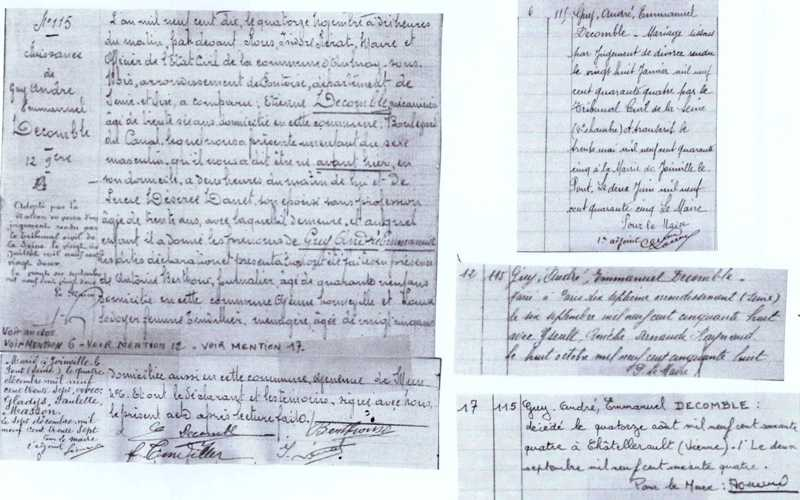 N° 115
Naissance
de
Guy André
Emmanuel
Decomble
12 9bre
Adopté par la
Nation en vertu d'un
jugement rendu par
le Tribunal civil de
la Seine le vingt six
Juillet mil neuf cent
vingt deux.
Le Maire
L'an mil neuf cent dix, le quatorze novembre à dix heures
du matin, par devant Nous, André Pérat, Maire et
Officier de l'Etat Civil de la commune d'Aulnay-sous-
Bois, arrondissement de Pontoise, département de
Seine-et-Oise, a comparu : Etienne Decomble mécanicien
âgé de trente six ans domicilié en cette commune, Boulevard
du Canal, lequel nous a présenté un enfant du sexe
masculin, qu'il nous a dit être né avant hier, en
son domicile, à deux heures du matin de lui et de
Désirée Danet, son épouse sans profession
âgée de trente ans, avec laquelle il demeure, et auquel
enfant il a donné les prénoms de Guy André Emmanuel
Lesdites déclaration et présentation ont été faites en présence
de Antoine Berthon, journalier, âgé de quarante neuf ans
domicilié en cette commune
femme ménagère, âgée de vingt cinq ans
VOIR AU DOS
VOIR MENTION 6 - VOIR MENTION 12 - VOIR MENTION 17.
Marié à Joinville le
Pont (Seine) le quatre
décembre mil neuf
cent trente sept, avec
Gladys, Paulette,
Masson.
Le sept décembre mil
neuf cent trente sept
Pour le maire
l'adjoint
domiciliée aussi en cette commune,
Et ont le déclarant et les témoins, signé avec nous
le présent acte après lecture faite.
E. Decomble
6 115 Guy, André, Emmanuel
Decomble - Mariage dissous
par jugement de divorce rendu
le vingt huit Janvier mil neuf
cent quarante quatre par le
Tribunal Civil de la Seine
chambre) et transcrit le
trente mai mil neuf cent quarante
cinq à la Mairie de Joinville le
Pont. Le deux Juin mil neuf
cent quarante cinq Le Maire
Pour le Maire
adjoint
12 115 Guy, André, Emmanuel Decomble -
marié à Paris dix septième arrondissement (Seine)
le six septembre mil neuf cent cinquante huit
avec Armande Raymond
le huit octobre mil neuf cent cinquante huit
Le Maire
17 115 Guy, André, Emmanuel DECOMBLE :
décédé le quatorze août mil neuf cent soixante
quatre à Châtellerault (Vienne). Le deux
septembre mil neuf cent soixante quatre.
Pour le Maire :